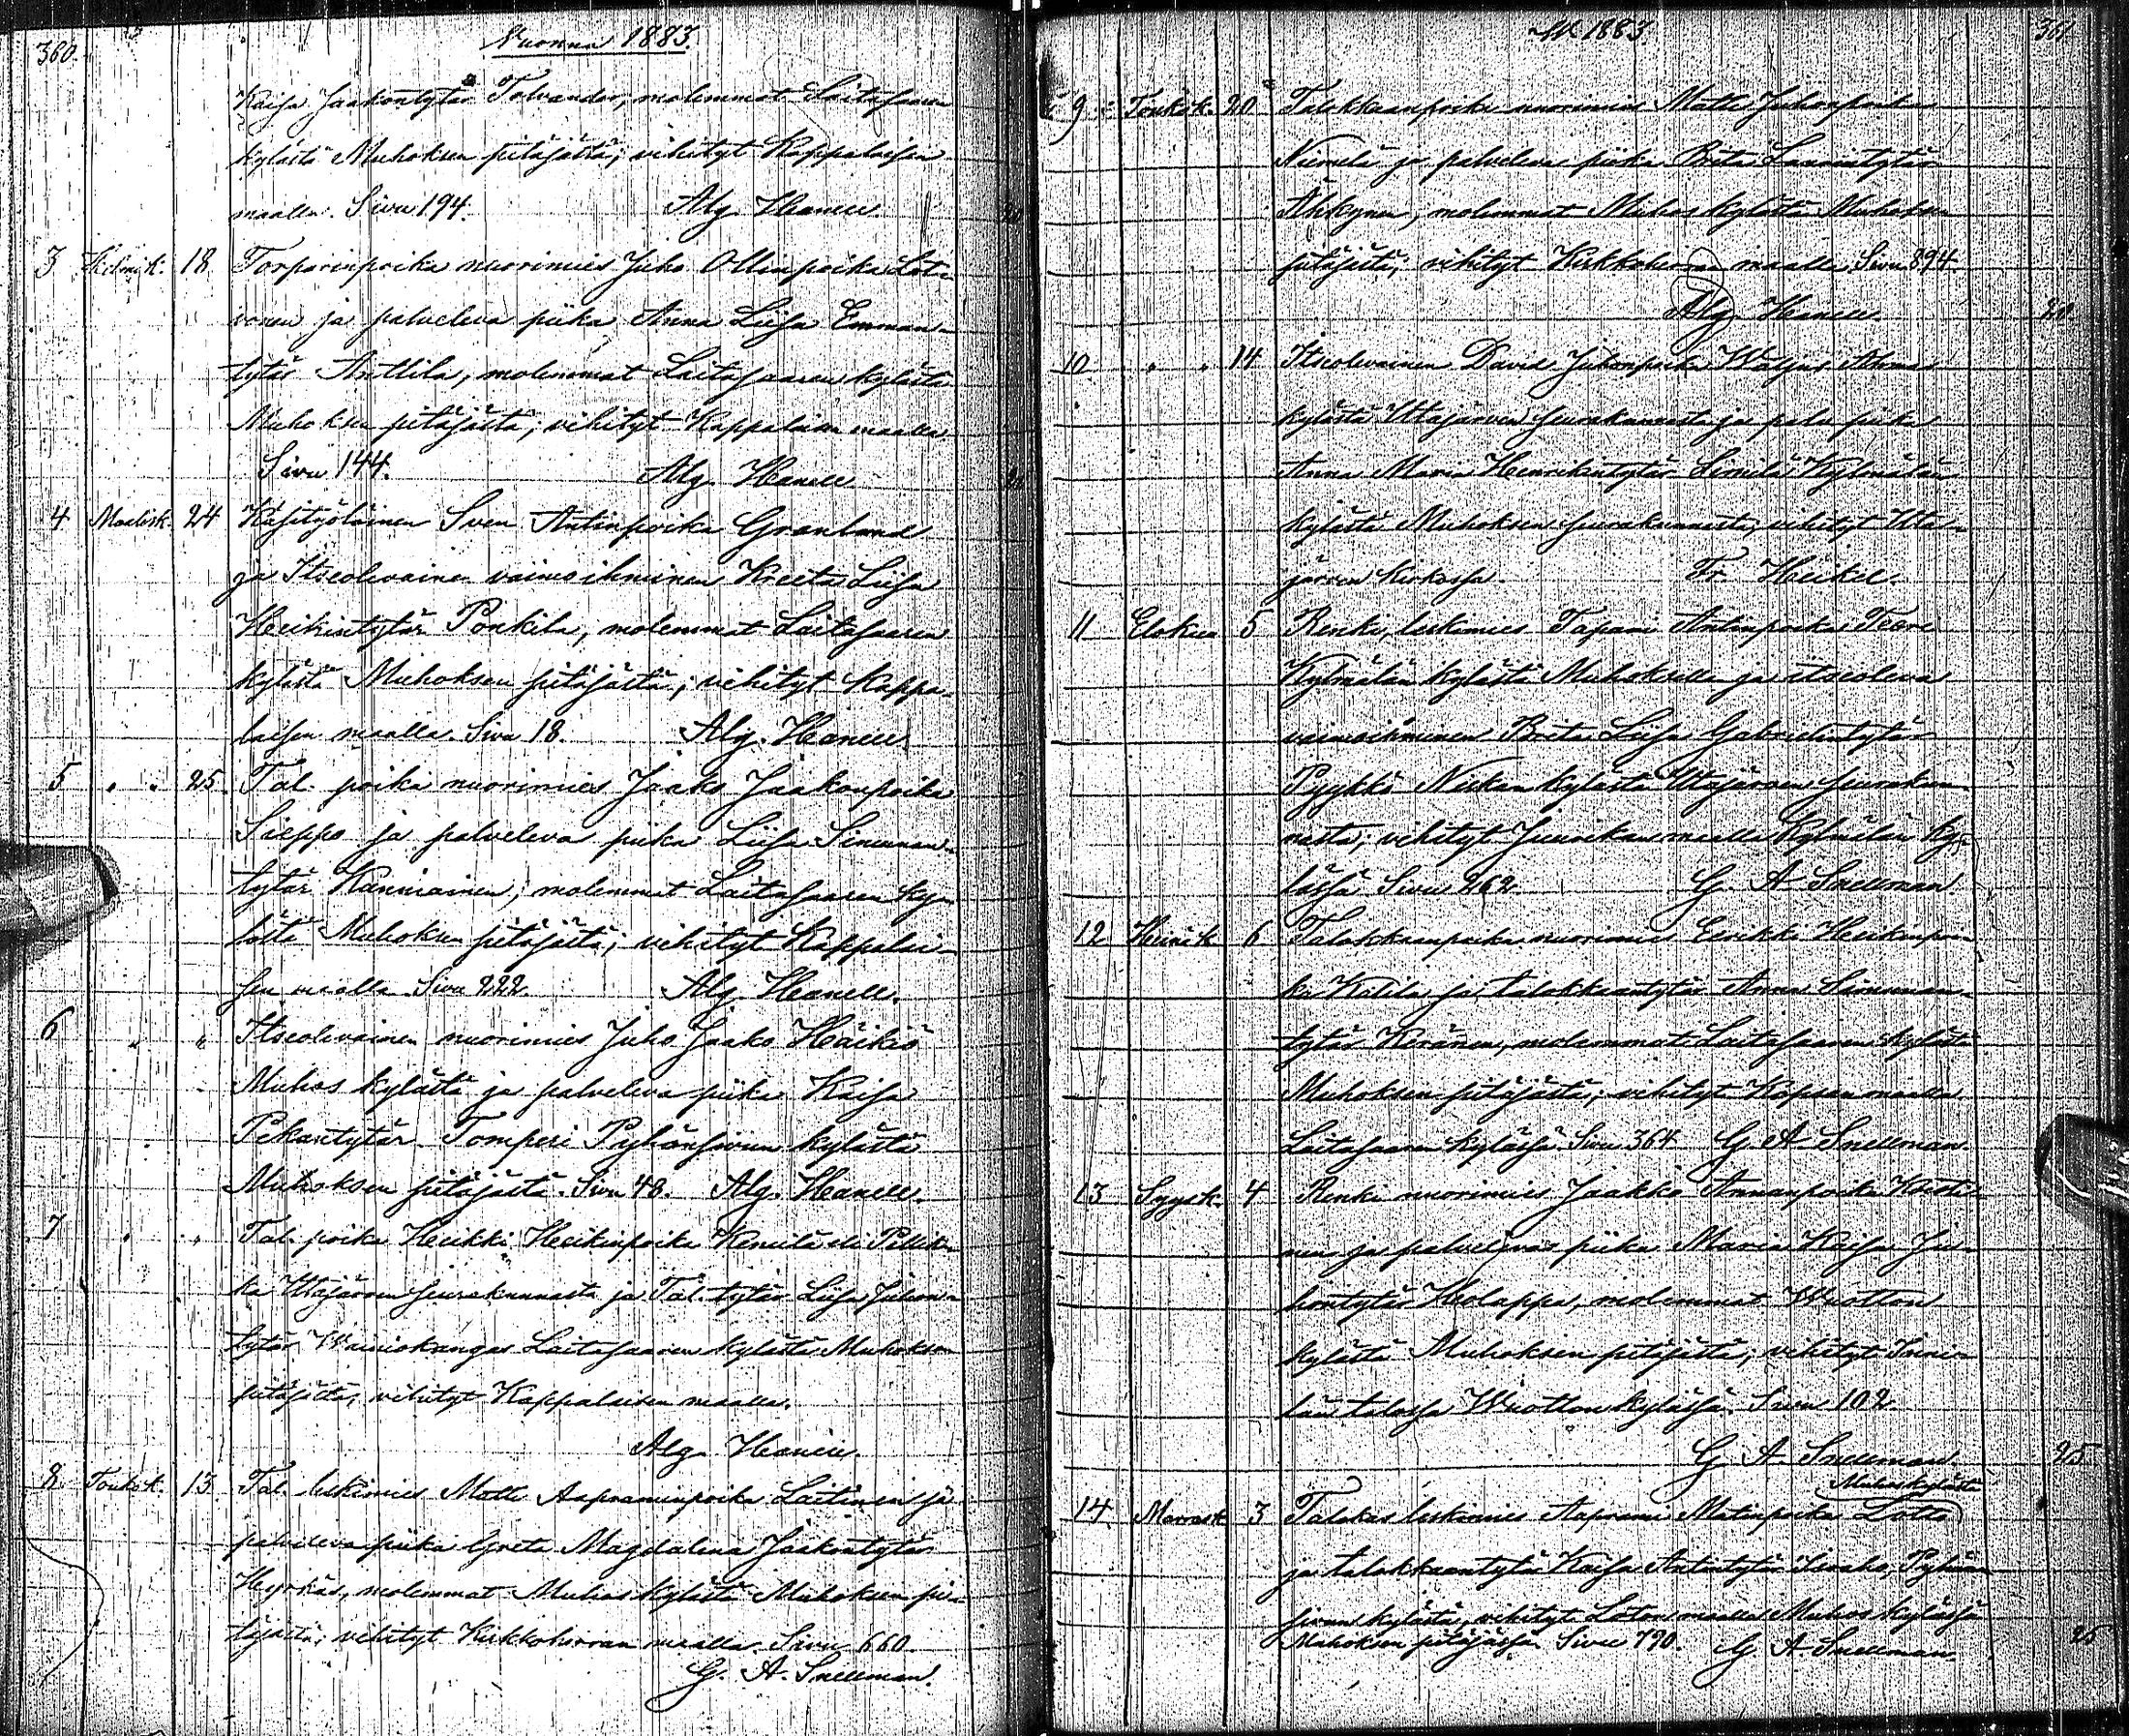 360.
Vuonna 1883.
Kaisa Jaakontytär Tolvander, molemmat Laitasaaren
kylästä Muhoksen pitäjästä; vihityt Kappalaisen
maalla. Sivu 194. Alg. Hanell
3 Helmik. 18 Torparinpoika nuorimies Juho Ollinpoika Lot-
vonen ja palveleva piika Anna Liisa Emman-
tytär Anttila, molemmat Laitasaaren kylästä
Muhoksen pitäjästä; vihityt Kappalaisen maalla
Sivu 144. Alg. Hanell
4 Maalisk. 24 Käsityöläinen Sven Antinpoika Granlund
ja Itseolevainen vaimoihminen Kreeta Liisa
Heikintytär Ponkila, molemmat Laitasaaren
kylästä Muhoksen pitäjästä; vihityt Kappa-
laisen maalla. Sivu 18. Alg. Hanell
5 " " 25. Tal. poika nuorimies Jaako Jaakonpoika
Sieppo ja palveleva piika Liisa Simunan-
tytär Kanniainen; molemmat Laitasaaren ky-
lästä Muhoksen pitäjästä; vihityt Kappalai-
sen maalla. Sivu 222. Alg. Hanell.
6 " " Itseolevainen nuorimies Juho Jaako Häikiö
Muhos kylästä ja palveleva piika Kaisa
Pekantytär Tomperi Pyhänsivun kylästä
Muhoksen pitäjästä. Sivu 48. Alg. Hanell.
7 " " Tal. poika Heikki Heikinpoika eli Pellik-
ka Utajärven seurakunnasta ja Tal. tytär Liisa Juhon-
tytär Wainiokangas Laitasaaren kylästä Muhoksen
pitäjästä, vihityt Kappalaisen maalla.
Alg. Hanell.
8 Toukok. 13 Tal. leskimies Matti Aapraminpoika Laitinen ja
palveleva piika Greta Magdalena Jaakontytär
Hyrkäs, molemmat Muhos kylästä Muhoksen pi-
täjästä; vihityt Kirkkoherran maalla. Sivu 660.
G. A. Snellman.
1883.
361
9 Toukok. 20 Talokkaanpoika nuorimies Matti Juhonpoika
Niemelä ja palveleva piika Brita Laurintytär
Ähkynen, molemmat Muhos kylästä Muhoksen
pitäjästä, vihityt Kirkkoherran maalla Sivu 894.
Alg. Hanell. 20
10 " " 14 Itseolevainen David Juhonpoika Waljus Ahmas
kylästä Utajärven seurakunnasta ja palv. piika
Anna Maria Henrikintytär Kylmälän
kylästä Muhoksen seurakunnasta; vihityt Uta-
järven Kirkossa. Fr. Heikel.
11 Elokuu 5 Renki, leskimies Tapani Antinpoika
Kylmälän kylästä Muhoksella ja itseoleva
vaimoihminen Brita Liisa Gabrielintytär
Pyykkö Niskan kylästä Utajärven seurakun-
nasta; vihityt Juurikan maalla Kylmälän ky-
lässä Sivu 262. G. A. Snellman
12 Heinäk. 6 Talokkaanpoika nuorimies Eerikki Heikinpoi-
ka Katila ja talokkaantytär Anna Simunan-
tytär Keränen, molemmat Laitasaaren kylästä
Muhoksen pitäjästä; vihityt maalla
Laitasaaren kylässä. Sivu 364 G. A. Snellman.
13 Syysk. 4 Renki nuorimies Jaakko Annanpoika
nen ja palveleva piika Maria Kaisa Ju-
hontytär Holappa, molemmat Wuotton
kylästä Muhoksen pitäjästä, vihityt
län talossa Wuotton kylässä. Sivu 102.
G. A. Snellman 25
Muhos kylästä
14 Marrask. 3 Talokas leskimies Aaprami Matinpoika Lotto
ja talokkaantytär Kaisa Antintytär Pyhän-
sivun kylästä; vihityt Loton maalla Muhos kylässä
Muhoksen pitäjässä. Sivu 790. G. A. Snellman 25